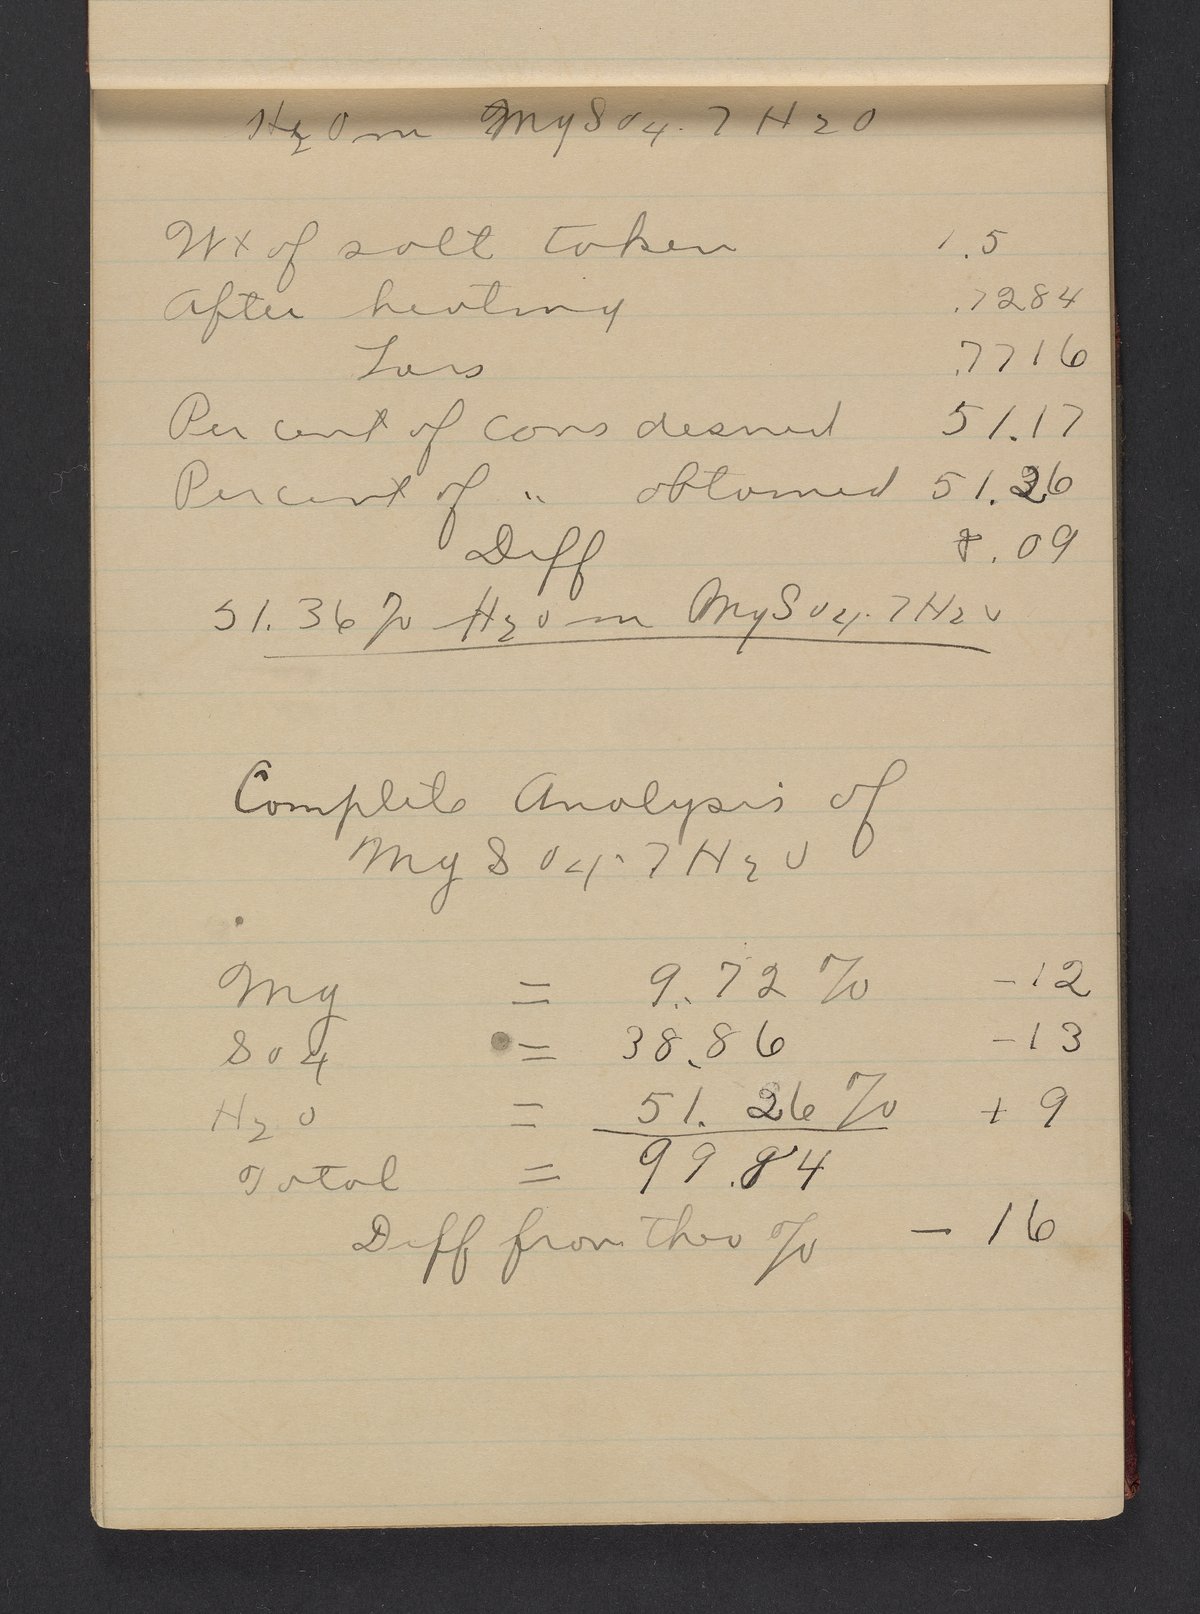 H2O in MgSO4.7H2O
Wt of salt taken 1.5
After heating .7284
Loss .7716
Per cent of cons desired 51.17
Percent of " obtained 51.26
Diff + .09
51.36% H2O in MgSO4.7H2O
Complete Analysis of
MgSO4.7H2O
Mg = 9.72% -12
SO4 = 38.86 -13
H2O = 51.26% + 9
Total = 99.84
Diff from theo % - 16